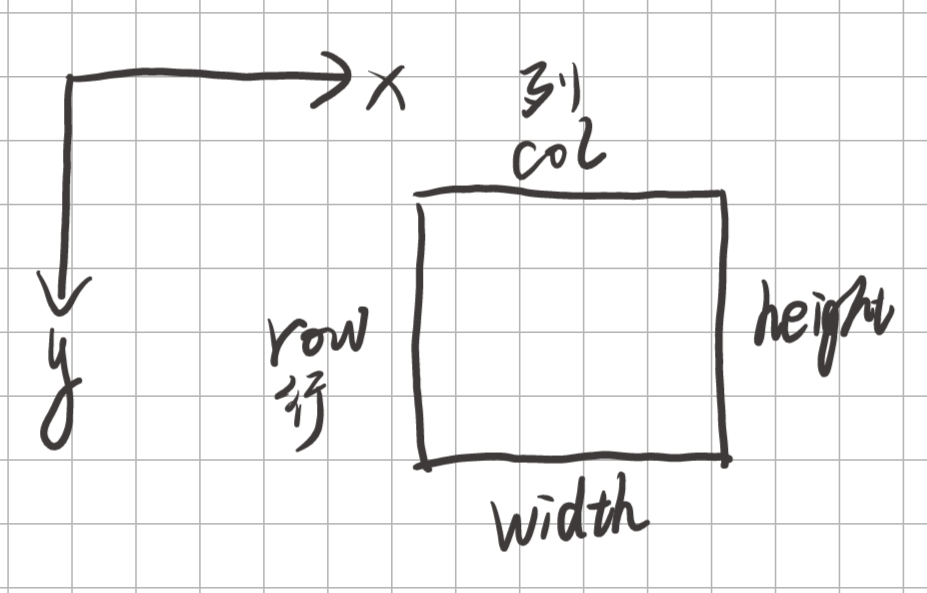 x
列
col
y
row
行
height
width